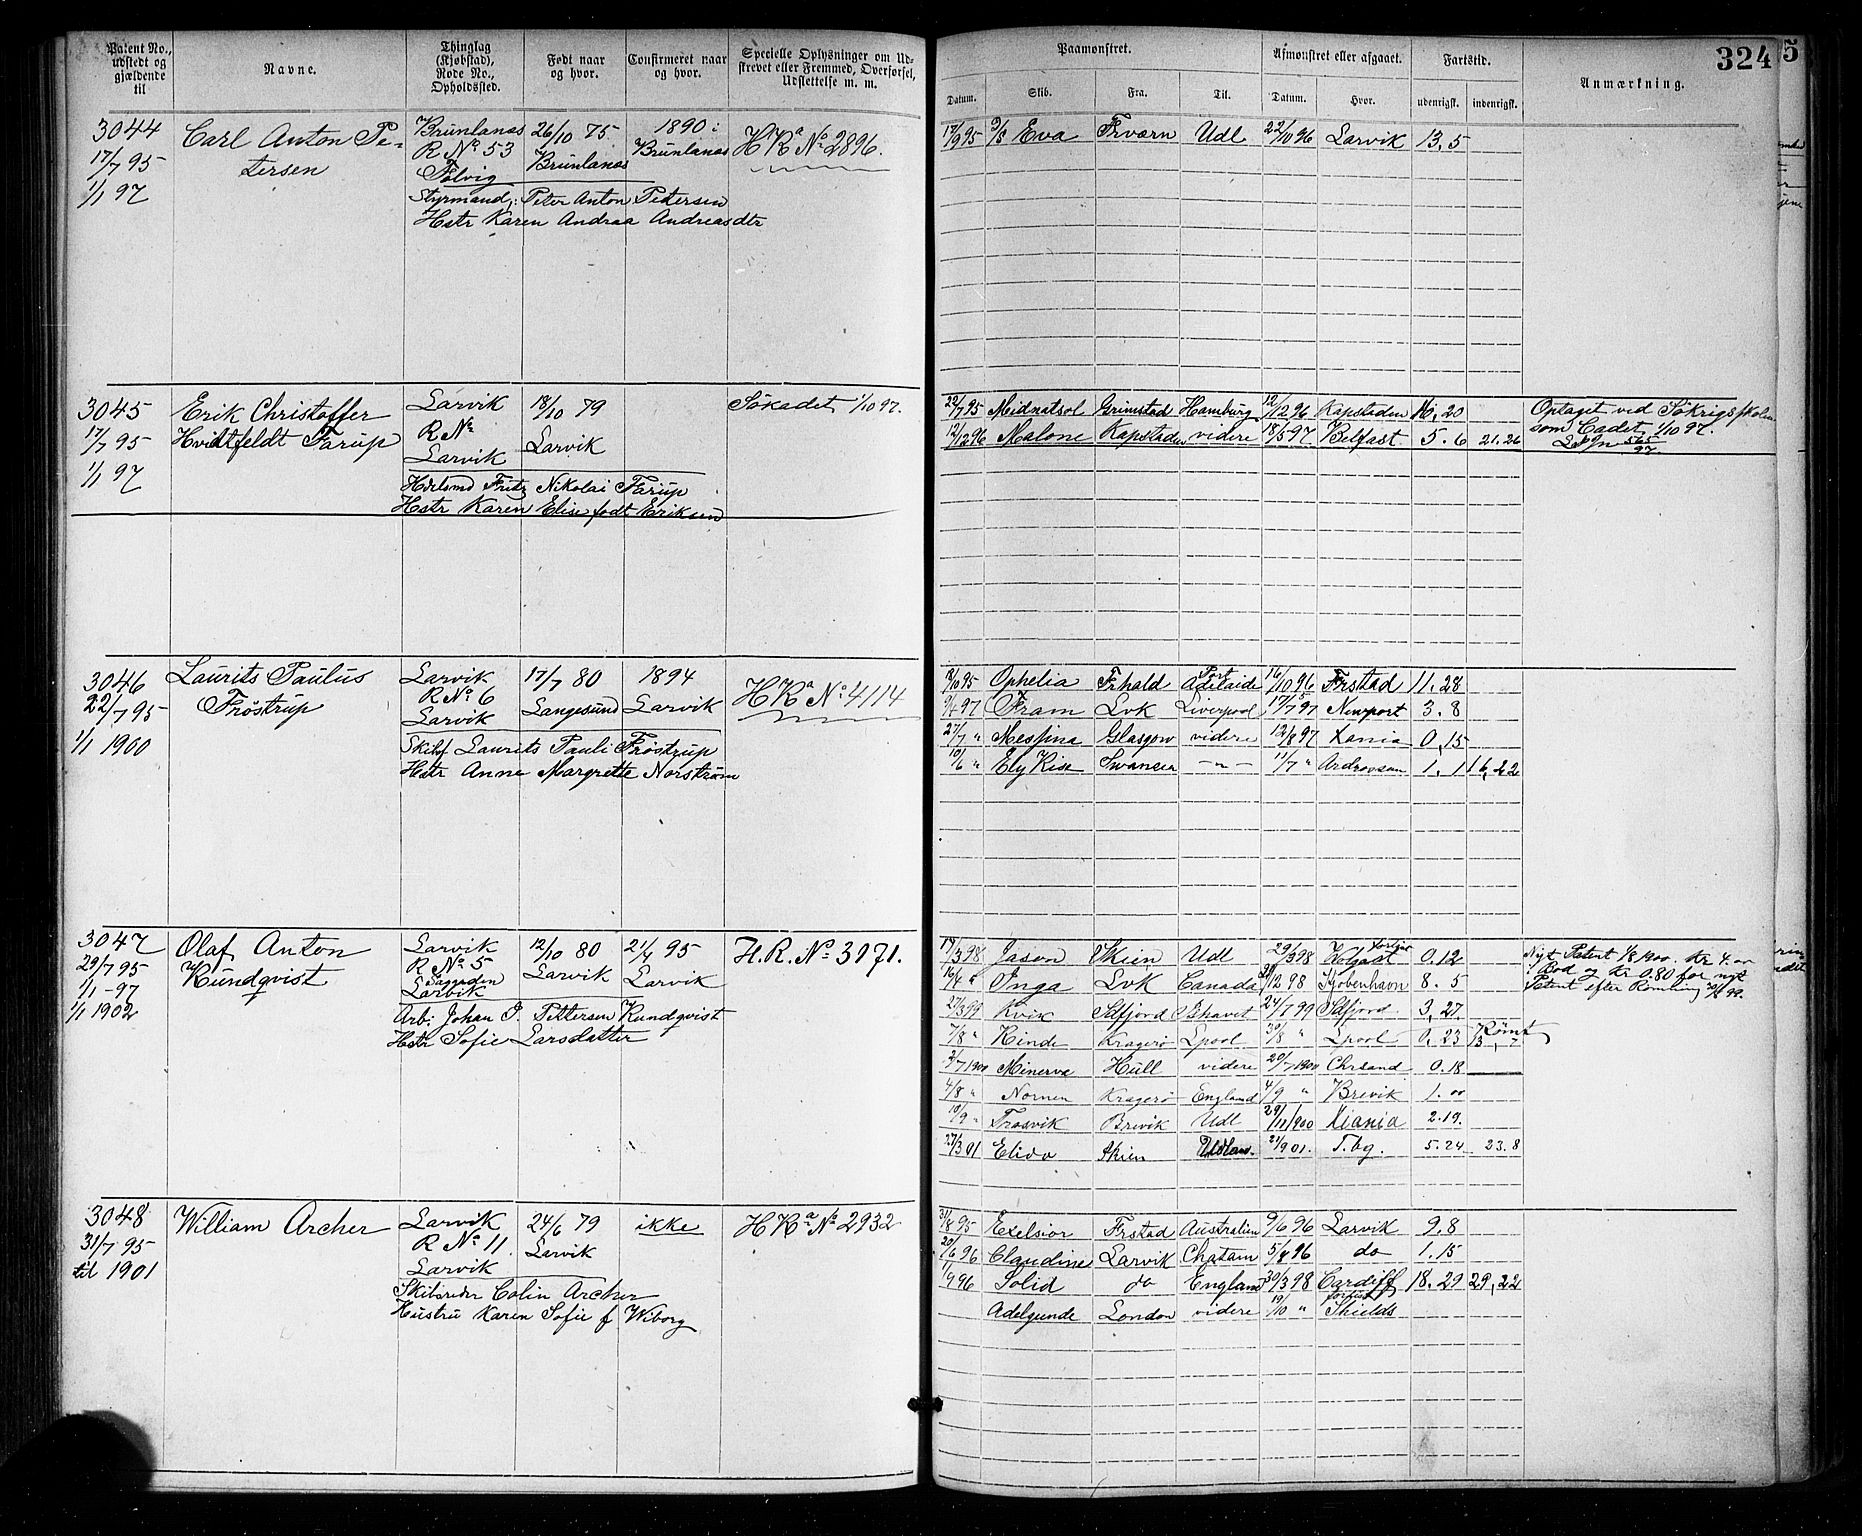 Patent No., udstedt og gjældende til
Navne.
Thinglag (Kjøbstad), Rode No., Opholdssted.
Født naar og hvor.
Confirmeret naar og hvor.
Specielle Oplysninger om Udskrevet eller Fremmed, Overførsel, Udslettelse m. m.
Paamønstret.
Afmønstret eller afgaaet.
Fartstid.
Anmærkning.
324
5
Datum.
Skib.
Fra.
Til.
Datum.
Hvor.
udenrigsk.
indenrigsk.
3044
17/7 95
1/1 97
Carl Anton Petersen
Brunlanæs
R No 53
Følvig
26/10 75
Brunlanæs
1890 i
Brunlanæs
H Ra No 2896.
Styrmand; Peter Anton Pettersen
Hstr Karen Andraa Andreasdtr
17/9 95 Eva Frværn Udl 22/10 96 Larvik 13,5
3045
17/7 95
1/1 97
Erik Christoffer
Hvidtfeldt Farup
Larvik
R No
Larvik
18/10 79
Larvik
Sökadet 1/10 97.
Fritz Nikolai Farup
Hstr Karen Elise født Eriksen
22/7 95 Midnatsol Grimstad Hamburg 12/12 96 Kapstaden 16,20
12/12 96 Malone Kapstaden videre 18/5 97 Belfast 5.6 21.26
Optaget ved Søkrigsskolen
som Cadet 1/10 97.
565/97
3046
22/7 95
1/1 1900
Laurits Paulus
Frøstrup
Larvik
R No 6
Larvik
17/7 80
Langesund
1894
Larvik
H Ra No 4114
Skibsf Laurits Pauli Frøstrup
Hstr Anne Margrette Norstrøm
18/10 95 Ophelia Frhald Port Adelaide 16/10 96 Frstad 11.28
97 Fram Lvk Liverpool 17/7 97 Newport 3.8
27/7 " Messina Glasgow videre 12/8 97 Xania 0,15
10/6 " Ely Rise Swansea -"- 11/7 " Ardrossan 1.1 16,22
3047
29/7 95
1/1-97
1/1 1902
Olaf Anton
Kundqvist
Larvik
R No 5
Larvik
12/10 80
Larvik
21/4 95
Larvik
H.R. No 3971.
Arb: Johan P. Pettersen Kundqvist
Hstr Sofie Larsdatter
19/3 98 Jason Skien Udl 29/3 98 Holgast 0.12
16/4 " Inga Lvk Canada 98 Kjøbenhavn 8.5
27/3 99 Kvik Sdfjord 24/7 99 Sdfjord 3,27.
7/8 " Kragerø Lpool 30/8 " Lpool 0,23 Rømt
7 1900 Minerva Hull videre 20/7 1900 Chrsand 0.18
4/8 " Nornen Kragerø England 4/9 " Brevik 1.00
10/9 " Trosvik Brevik Udl 29/11 1900 Xiania 2.19.
27/3 01 Elida Skien 21/9 01. T.bg. 5.24 23.8
Nyt Patent 1/8 1900. Kr 4.00
i Bod og Kr 0.80 for nyt
Patent efter Rømning 99.
3048
31/7 95
til 1901
William Archer
Larvik
R No 11
Larvik
24/6 79
Larvik
ikke
H Ra No 2932
Skibsreder Colin Archer
Hustru Karen Sofie f Wiborg
31/8 95 Exelsior Frstad Australien 9/6 96 Larvik 9.8
20/6 96 Claudine Larvik Chatam 5/8 96 do 1.15
1/9 96 Solid do England 30/3 98 Cardiff 18.29 29,22
Adelgunde London videre 19/10 " Shields